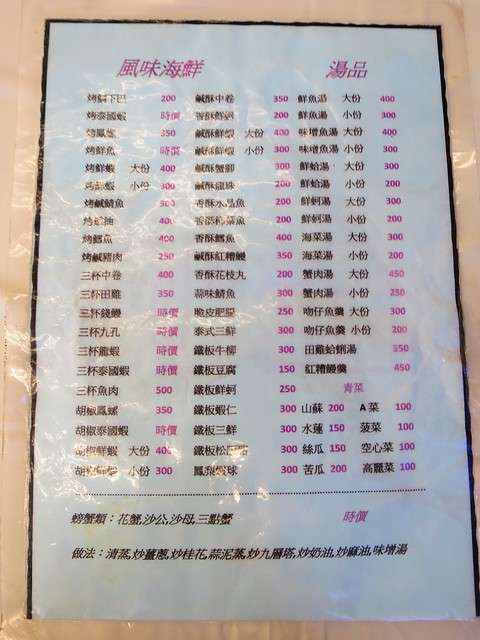 風味海鮮 湯品
烤鯛下巴 200 鹹酥中卷 350 鮮魚湯 大份 400
烤泰國蝦 時價 香酥鮮蚵 200 鮮魚湯 小份 300
烤鳳螺 350 鹹酥鮮蝦 大份 400 味增魚湯 大份 400
烤鮮魚 時價 鹹酥鮮蝦 小份 300 味增魚湯 小份 300
烤鮮蝦 大份 400 鹹酥蟹腳 300 鮮蛤湯 大份 300
烤鮮蝦 小份 300 鹹酥龍珠 200 鮮蛤湯 小份 200
烤鹹鯖魚 300 香酥水晶魚 200 鮮蚵湯 大份 300
400 200 鮮蚵湯 小份 200
烤鱈魚 400 香酥鱈魚 400 海菜湯 大份 300
烤鹹豬肉 250 鹹酥紅糟鰻 350 海菜湯 小份 200
三杯中卷 400 香酥花枝丸 200 蟹肉湯 大份 450
三杯田雞 350 蒜味鯖魚 300 蟹肉湯 小份 250
三杯錢鰻 時價 脆皮肥腸 250 吻仔魚羹 大份 300
三杯九孔 時價 泰式三鮮 300 吻仔魚羹 小份 200
三杯龍蝦 時價 鐵板牛柳 300 田雞蛤蜊湯 350
三杯泰國蝦 時價 鐵板豆腐 150 紅糟鰻羹 450
三杯魚肉 500 鐵板鮮蚵 250 青菜
胡椒鳳螺 350 鐵板蝦仁 300 山蘇 200 A菜 100
胡椒泰國蝦 時價 鐵板三鮮 300 水蓮 150 菠菜 100
胡椒鮮蝦 大份 400 鐵板松阪豬 300 絲瓜 150 空心菜 100
胡椒鮮蝦 小份 300 鳳梨蝦球 300 苦瓜 200 高麗菜 100
螃蟹類：花蟹,沙公,沙母,三點蟹 時價
做法：清蒸,炒薑蔥,炒桂花,蒜泥蒸,炒九層塔,炒奶油,炒麻油,味增湯